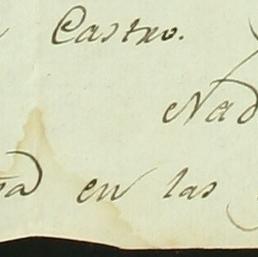 Castro.
Nad
en las